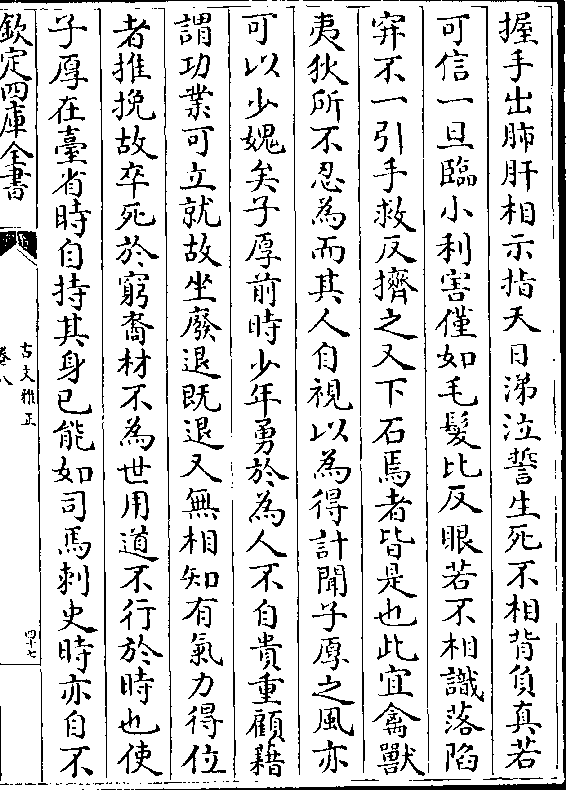 握手出肺肝相示指天日涕泣誓生死不相背負真若
可信一旦臨小利害僅如毛髮比反眼若不相識落陷
穽不一引手救反擠之又下石焉者皆是也此宜禽獸
夷狄所不忍為而其人自視以為得計聞子厚之風亦
可以少媿矣子厚前時少年勇於為人不自貴重顧藉
謂功業可立就故坐廢退既退又無相知有氣力得位
者推挽故卒死於窮裔材不為世用道不行於時也使
子厚在臺省時自持其身已能如司馬刺史時亦自不
欽定四庫全書
古文雅正
卷八
四十七